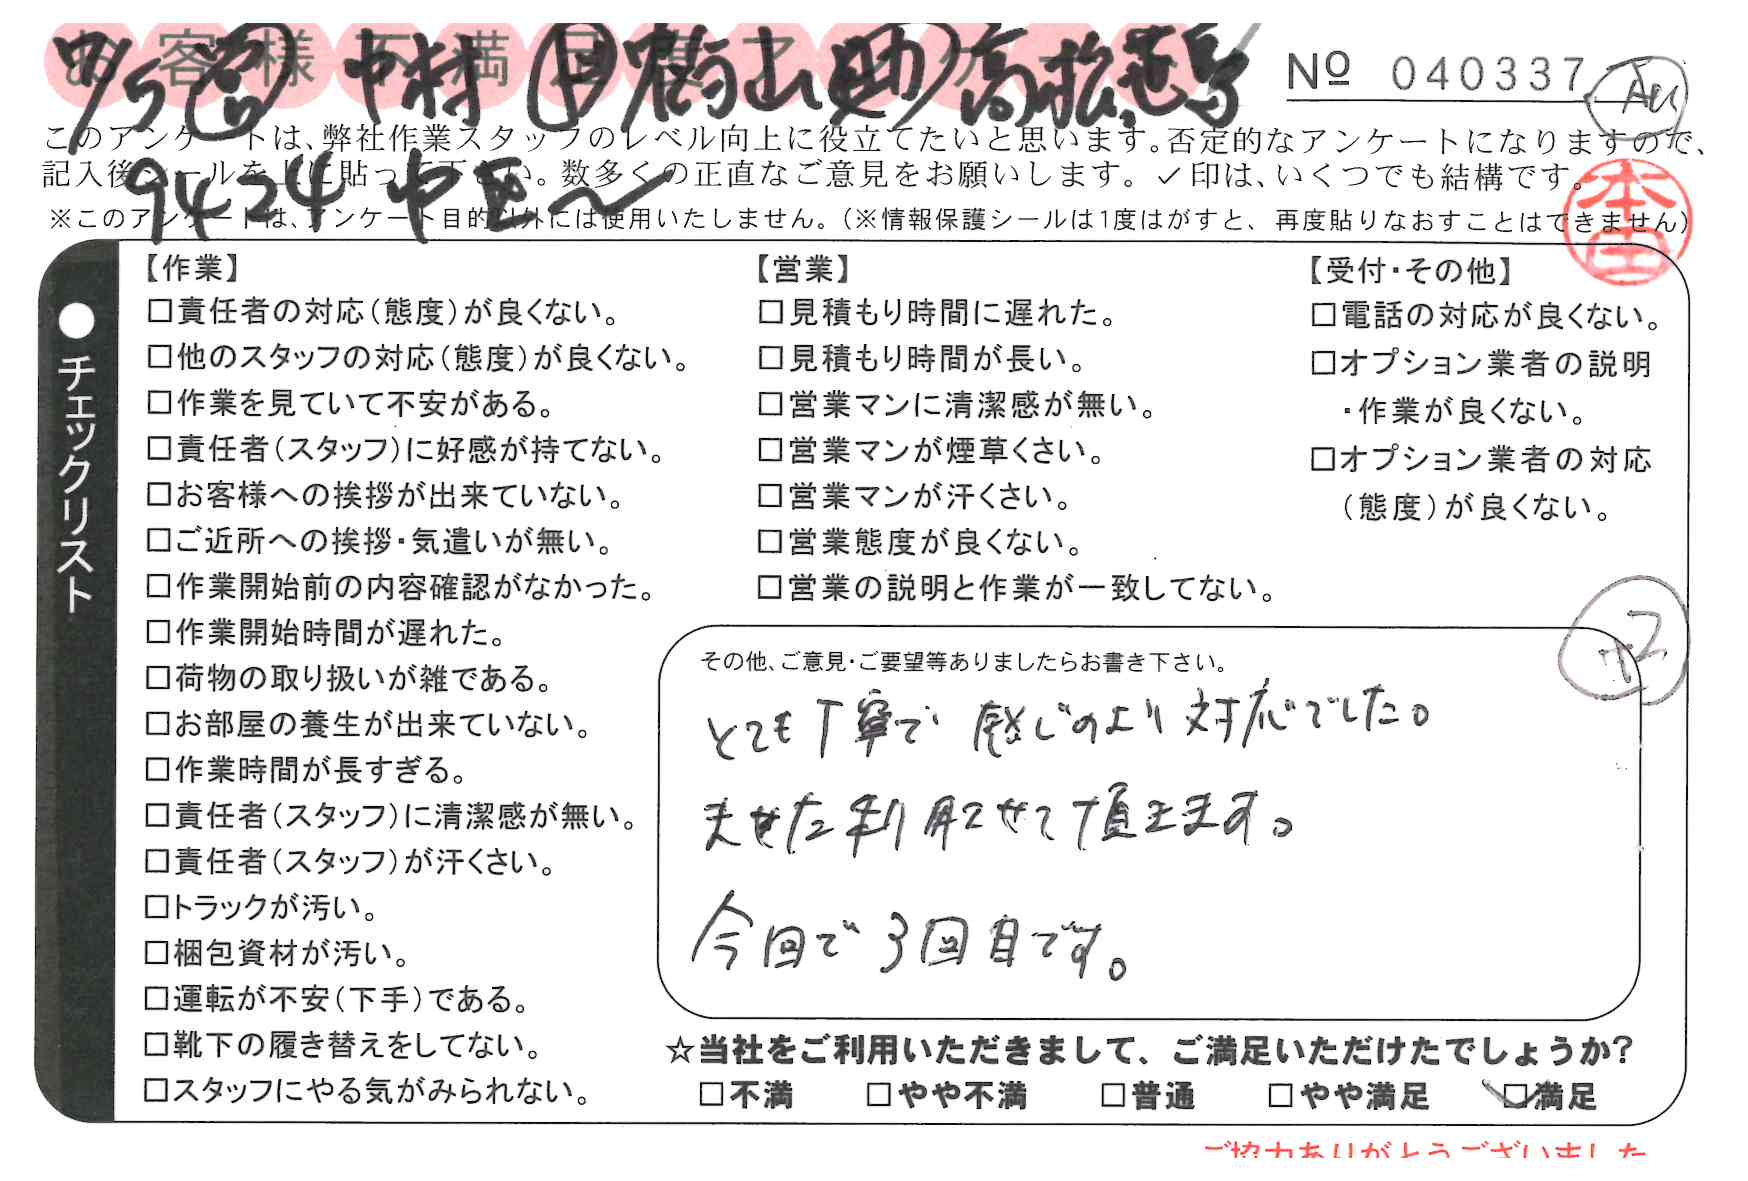 お客様不満足度アンケート
中村 高松
№ 040337
Au
このアンケートは、弊社作業スタッフのレベル向上に役立てたいと思います。否定的なアンケートになりますので、
記入後シールを上に貼って下さい。数多くの正直なご意見をお願いします。✓印は、いくつでも結構です。
9424 中区〜
本田
※このアンケートは、アンケート目的以外には使用いたしません。(※情報保護シールは1度はがすと、再度貼りなおすことはできません)
●チェックリスト
【作業】
□責任者の対応(態度)が良くない。
□他のスタッフの対応(態度)が良くない。
□作業を見ていて不安がある。
□責任者(スタッフ)に好感が持てない。
□お客様への挨拶が出来ていない。
□ご近所への挨拶・気遣いが無い。
□作業開始前の内容確認がなかった。
□作業開始時間が遅れた。
□荷物の取り扱いが雑である。
□お部屋の養生が出来ていない。
□作業時間が長すぎる。
□責任者(スタッフ)に清潔感が無い。
□責任者(スタッフ)が汗くさい。
□トラックが汚い。
□梱包資材が汚い。
□運転が不安(下手)である。
□靴下の履き替えをしてない。
□スタッフにやる気がみられない。
【営業】
□見積もり時間に遅れた。
□見積もり時間が長い。
□営業マンに清潔感が無い。
□営業マンが煙草くさい。
□営業マンが汗くさい。
□営業態度が良くない。
□営業の説明と作業が一致してない。
【受付・その他】
□電話の対応が良くない。
□オプション業者の説明
・作業が良くない。
□オプション業者の対応
(態度)が良くない。
+2
その他、ご意見・ご要望等ありましたらお書き下さい。
とても丁寧で 感じのよい対応でした。
また利用させて頂きます。
今回で3回目です。
☆当社をご利用いただきまして、ご満足いただけたでしょうか?
□不満 □やや不満 □普通 □やや満足 ☑満足
ご協力ありがとうございました